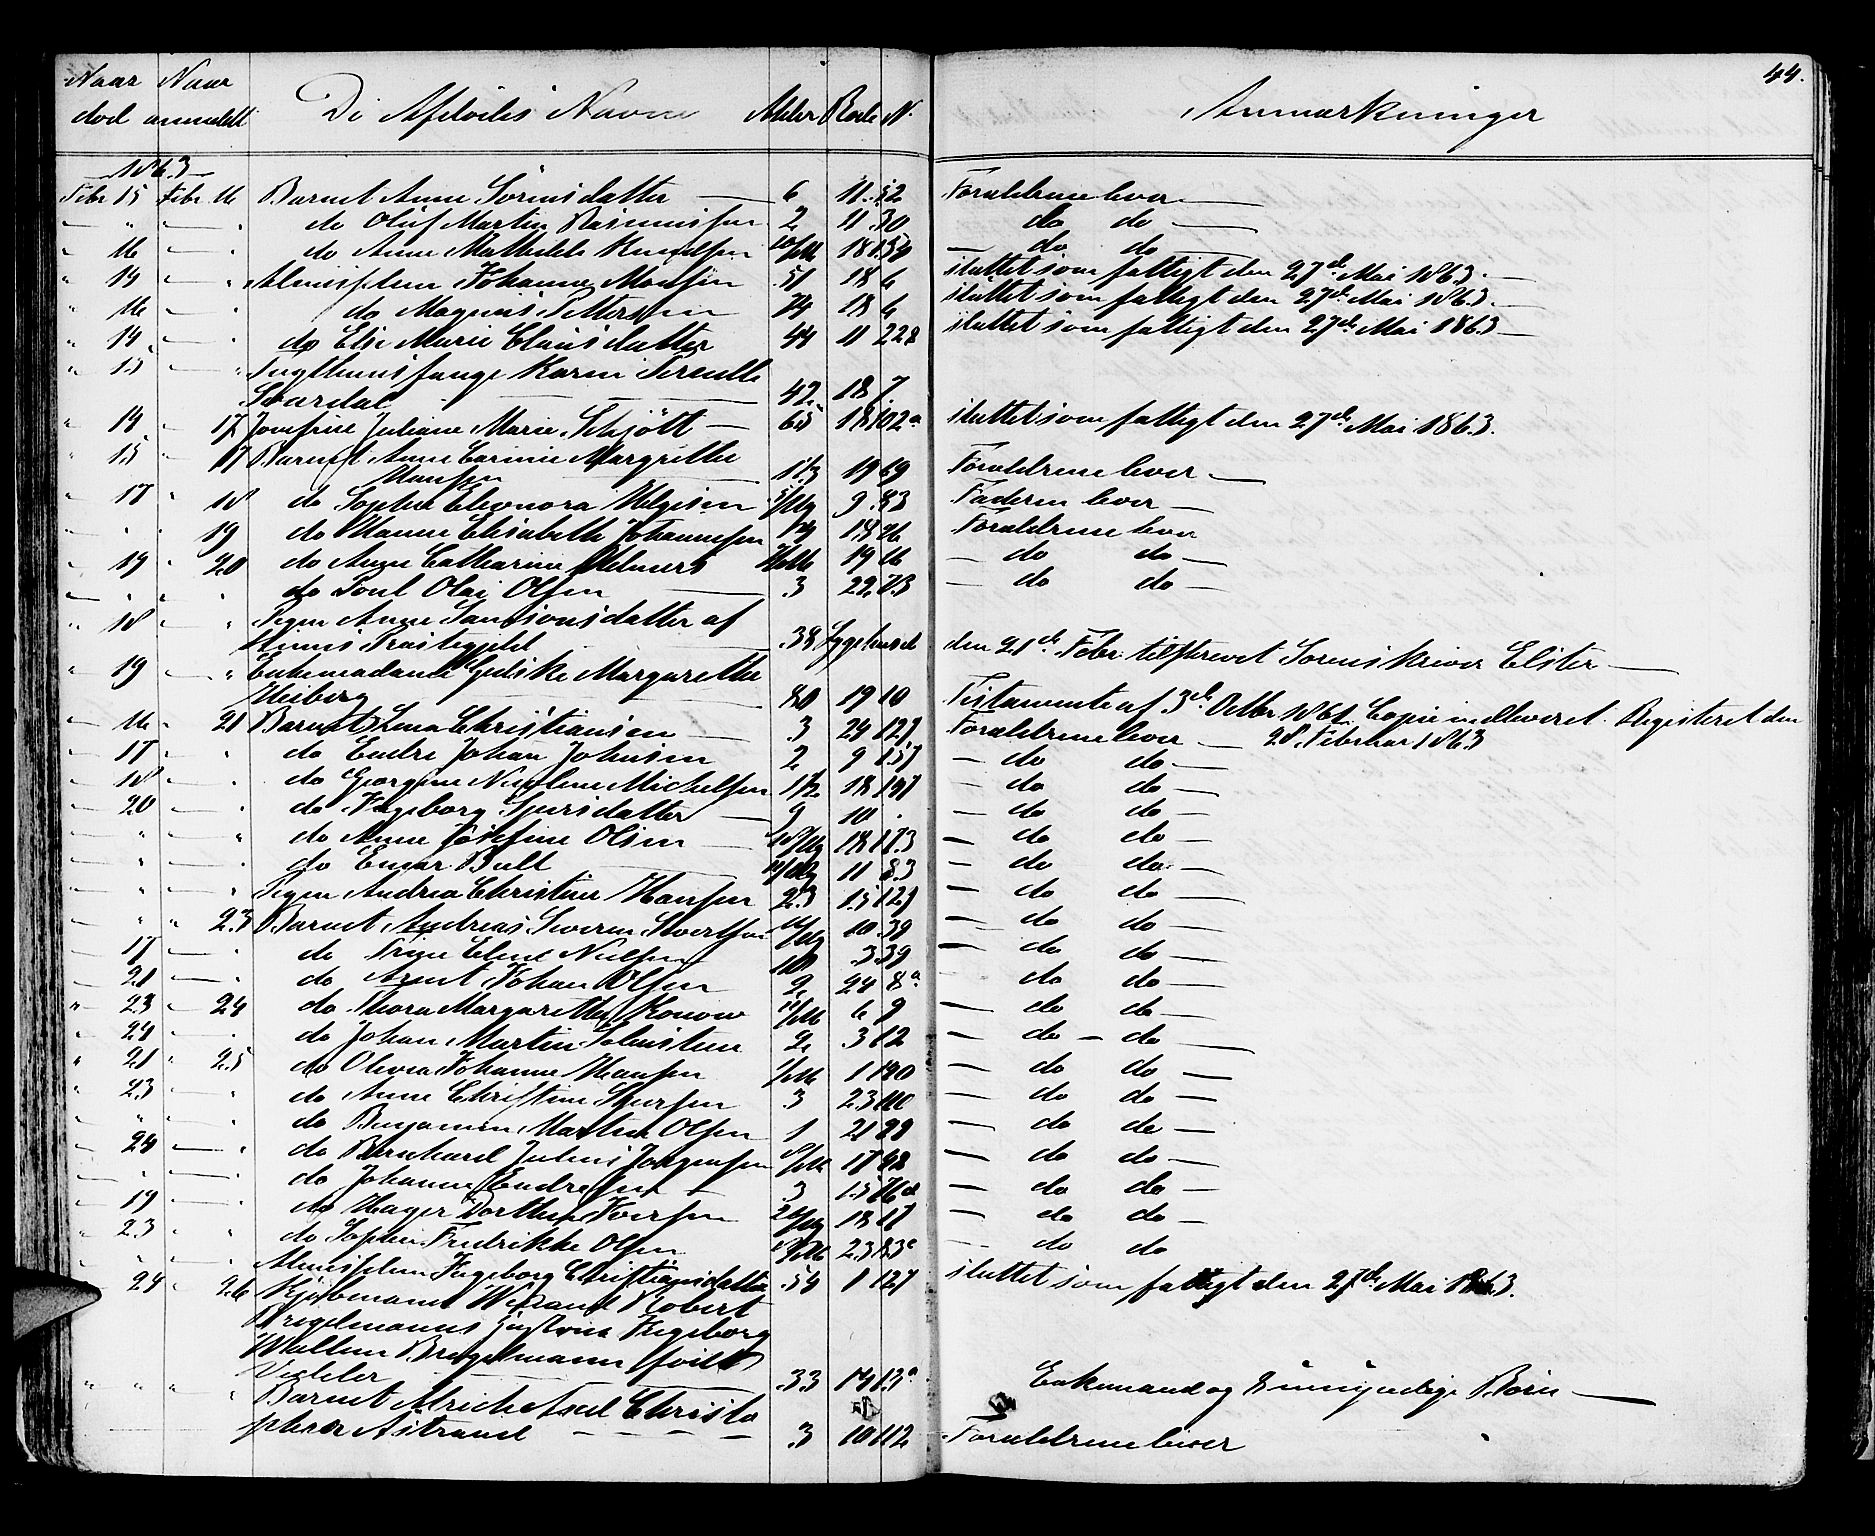 44.
Naar Naar De Afdødes Navne Alder Rode N. Anmærkninger
død anmeldt
1863
Febr 15 Febr 16 Barnet Anne Sörensdatter — 6 11 52 Forældrene lever —
" " do Oluf Martin Rasmussen 2 11 30 do do —
" 16 — " do Anne Mathilde Knudsen 10/M 18 134 — do do —
" 14 — " Almisslem Johanne Monsen 51 18 6 sluttet som fattigt den 27de Mai 1863. —
" 16 — " do Magnus Pettersen 74 18 6 sluttet som fattigt den 27de Mai 1863. —
" 14 — " do Else Marie Clausdatter 44 11 228 sluttet som fattigt den 27de Mai 1863 —
" 15 — " Tugthusfange Karen Pernille
Svardal — 42 18 7
" 14 — 17 Jomfrue Juliane Marie Schjött — 65 18 102a sluttet som fattigt den 27de Mai 1863.
" 15 " 17 Barnet Anne Margrethe
Hansen — 1 1/2 19 69 Forældrene lever —
" 17 " 18 do Sophie Eleonora Helgesen 9 83 Faderen lever —
" " 19 do Hanne Elisabeth Johannessen 18 26 Forældrene lever
" 19 " 20 do Anne Catharine Helmers 19 16 — do do —
— " " " do Poul Olai Olsen — 3 22 73 — do do —
" 18 — " Pigen Anne Samsonsdatter af
Præstegjeld — 38 Sygehuset den 21de Febr. tilskrevet Sorenskriver Elster —
" 19 — " Enkemadame Gediske Margarethe
Heiberg — 80 19 10 Testamente af 3de Octbr 1861. Copie indleveret. Registeret den
— 16 " 21 Barnet Lena Christiansen — 3 24 127 Forældrene lever — 28. Februar 1863
— 17 — " do Endre Johan Johnsen 2 9 157 — do do —
— 18 — " do Georgine Nicoline Michelsen 1 1/2 18 191 — do do —
— 20 — " do Ingeborg Sjursdatter — 9 10 . — do do —
— " — " do Anne Josefine Olsen — 18 173 — do do —
— " — " do Einar Bull — 11 83 — do do —
— " — " Pigen Andrea Christine Hansen 23 15 127 — do do —
— " " 23 Barnet Andreas Severin Sivertsen 10 39 — do do —
— 17 — " do Trine Elene Nielsen 10 3 39 — do do —
— 21 — " do Arnt Johan Olsen 2 24 8a — do do —
" 23 " 24 do Thora Margarethe Konow 11/M 6 9 — do do —
— 24 — " do Johan Martin 2 3 12 — do — do —
" 21 " 25 do Olivia Johanne Hansen 1 190 — do do —
" 23 — " do Anne Christine Sjursen 3 23 110 — do do —
" " — " do Benjamin Martin Olsen 1 21 88 — do do —
— 24 — " do Bernhard Julius Jørgensen 17 98 — do do —
— " — " do Johanne Endresen — 3 15 76a — do do —
— 19 — " do Dorthea Iversen 18 17 — do do —
— 23 — " do Sophie Fredrikke Olsen 23 83c — do do
— " — " Almisslem Ingeborg Christiansdatter 54 1 127 sluttet som fattigt den 27de Mai 1863.
— 24 " 26 Kjøbmand Wigand Robert
Brigelmanns Hustrue Ingeborg
Wallem Brigelmann född
Vedeler — 33 14 13a Enkemand og 8 umyndige Børn —
" " " " Barnet Alrich Axel Christo
pher Astrand — — — — 3 10 112 Forældrene lever